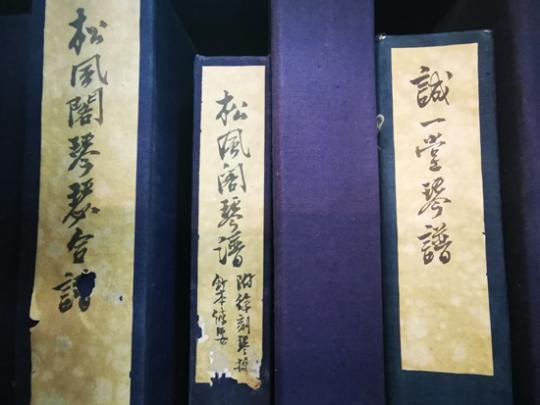 松風閣琴瑟合譜
松風閣琴譜
附
誠一堂琴譜